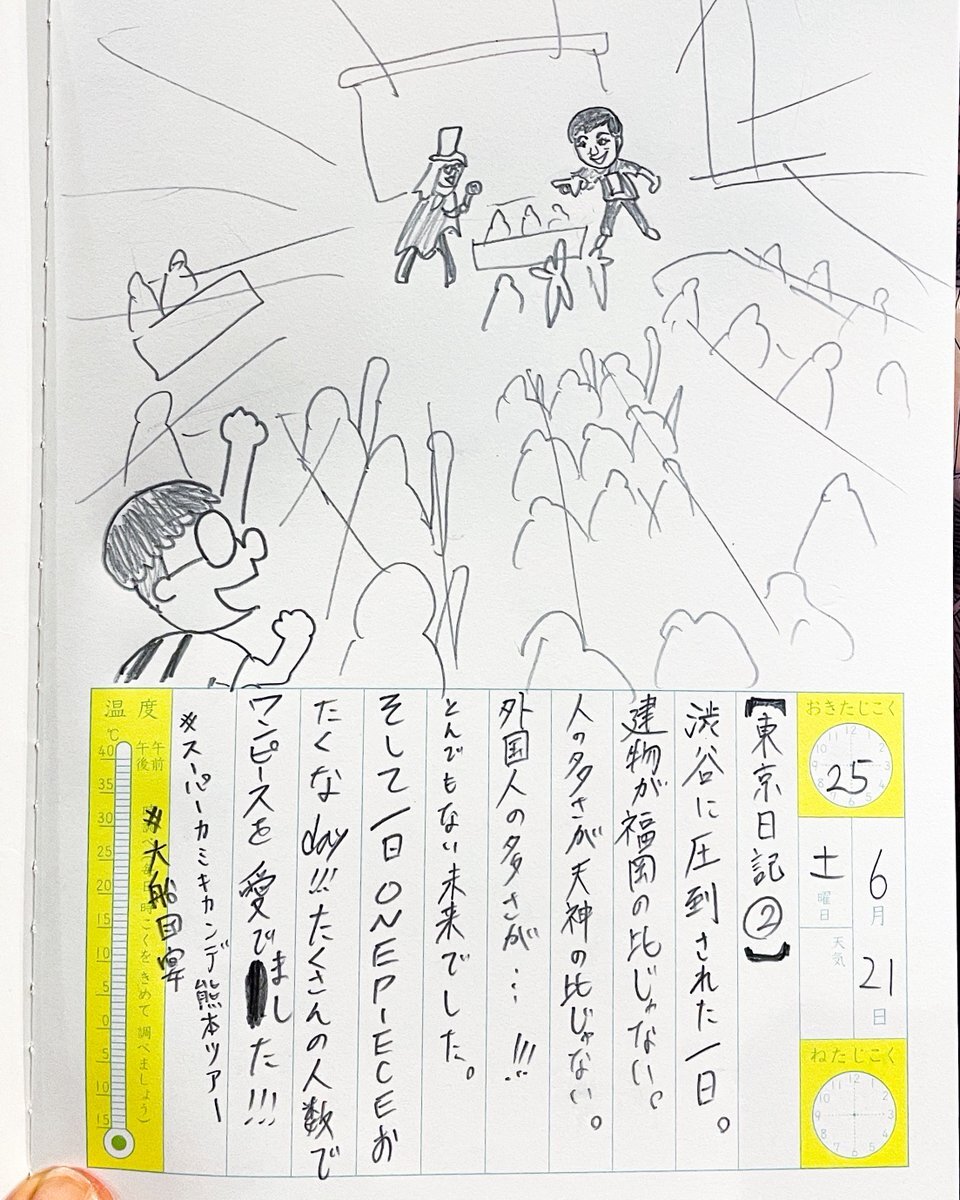 おきたじこく
25
6月21日
土曜日
天気
ねたじこく
【東京日記②】
渋谷に圧到された一日。
建物が福岡の比じゃない。
人の多さが天神の比じゃない。
外国人の多さが…!!!
とんでもない未来でした。
そして一日ONEPIECEお
たくなday!!!たくさんの人数で
ワンピースを愛でました!!!
※スーパーカミキカンデ熊本ツアー
※大船団宴
温度
℃
午前
午後
40
35
30
25
20
15
10
5
0
5
10
15
こくを きめて 調べましょう)